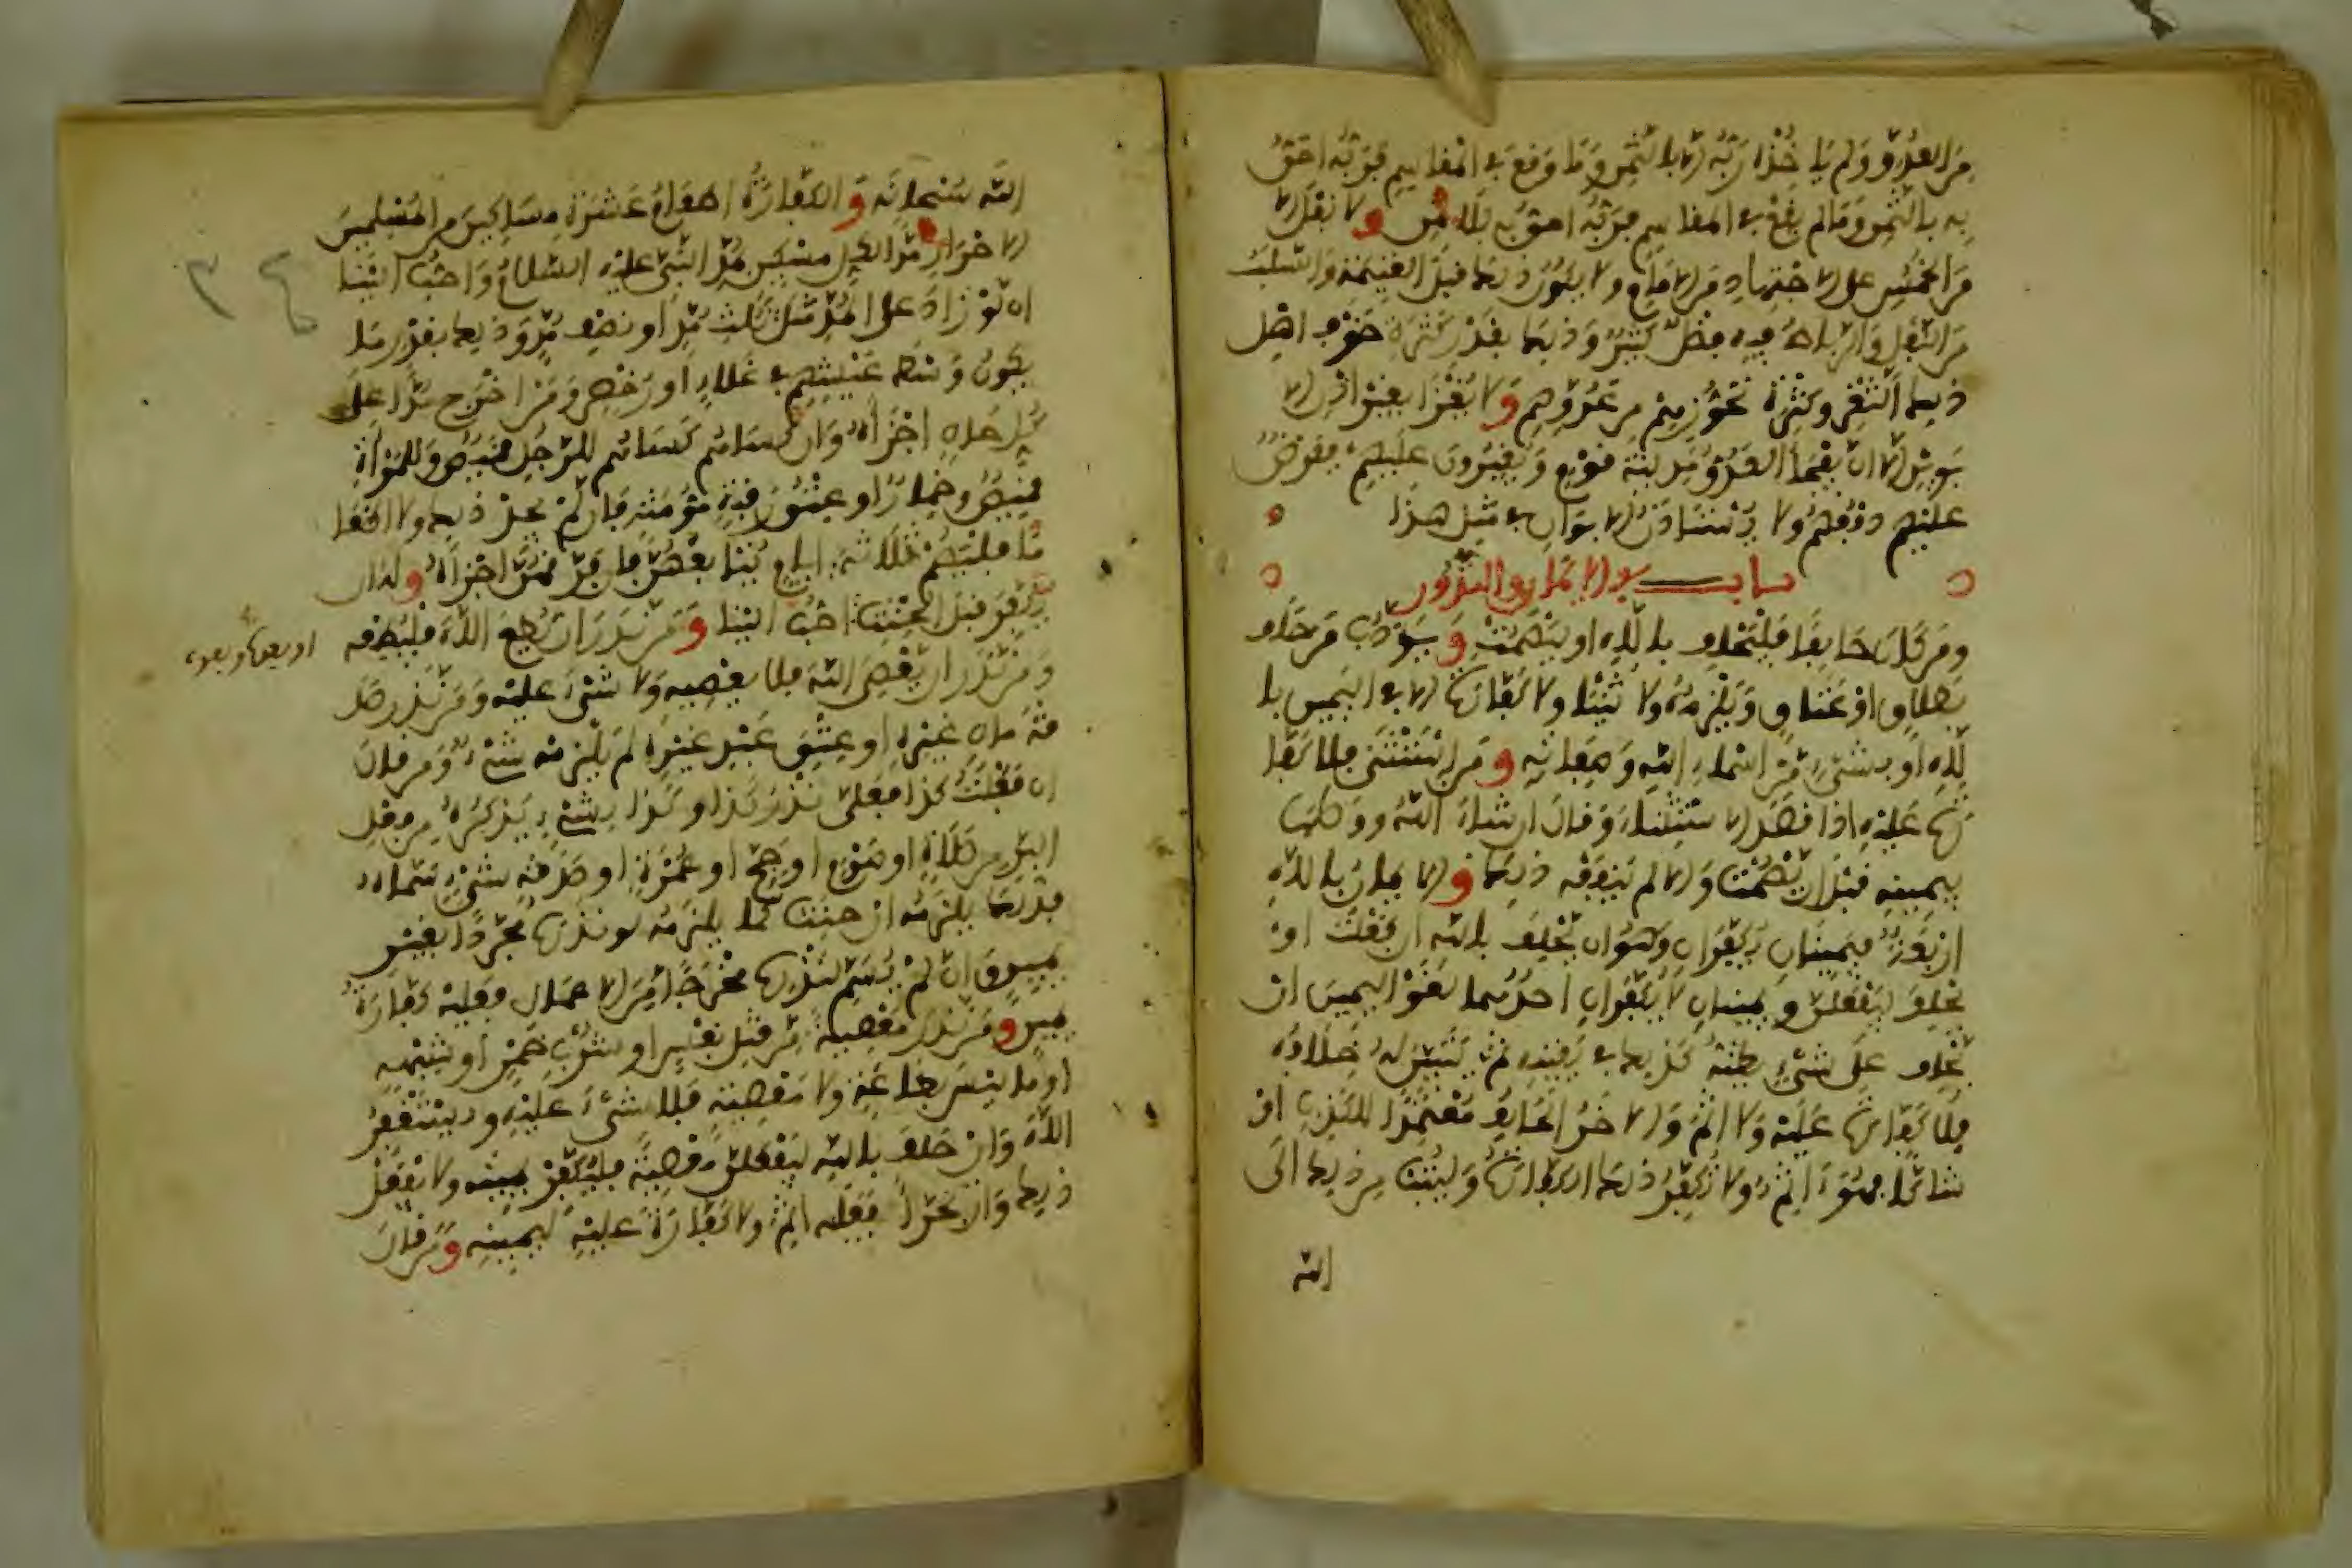 من العدو ولم ياخذه ربه الا بالثمن وما وقع في المقاسم فربه احق
به بالثمن وما لم يقع في المقاسم فربه احق به بلا ثمن ولا نفل الا
من الخمس على الاجتهاد من الامام ولا يكون ذلك قبل الغنيمة والسلب
من النفل والرباط فيه فضل كثير وذلك بقدر كثرة خوف اهل
ذلك الثغر وكثرة تحرزهم من عدوهم ولا يغزا بغير اذن الا
بوين الا ان يفجأ العدو مدينة قوم ويغيرون عليهم ففرض
عليهم دفعهم ولا يستاذن الابوان في مثل هذا
باب في الايمان والنذور
ومن كان حالفا فليحلف بالله او ليصمت ويودب من حلف
بطلاق او عتاق ويلزمه ولا ثنيا ولا كفارة الا في اليمين با
لله او بشيء من اسماء الله وصفاته ومن استثنى فلا كفا
رة عليه اذا قصد الاستثناء وقال ان شاء الله ووصلها
بيمينه قبل ان يصمت والا لم ينفعه ذلك والايمان بالله
اربعة فيمينان يكفران وهو ان يحلف بالله ان فعلت او
يحلف ليفعلن ويمينان لا يكفران احدهما لغو اليمين ان
يحلف على شيء يظنه كذلك في يقينه ثم يتبين له خلافه
فلا كفارة عليه ولا اثم والاخر الحالف متعمدا للكذب او
شاكا فهو اثم ولا تكفر ذلك الكفارة وليتب من ذلك الى
الله
الله سبحانه والكفارة اطعام عشرة مساكين من المسلمين
الاحرار مدا لكل مسكين بمد النبي عليه السلام واحب الينا
ان لو زاد على المد مثل ثلث مد او نصف مد وذلك بقدر ما
يكون وسط عيشهم في غلاء او رخص ومن اخرج مدا على
كل حال اجزأه وان كساهم كساهم للرجل قميص وللمرأة
قميص وخمار او عتق رقبة مؤمنة فان لم يجد ذلك ولا اطعا
ما فليصم ثلاثة ايام يتابعهن فان فرقهن اجزأه وله ان
يكفر قبل الحنث احب الينا ومن نذر ان يطيع الله فليطعه
ومن نذر ان يعصي الله فلا يعصه ولا شيء عليه ومن نذر صد
قة مال غيره او عتق عبد غيره لم يلزمه شيء ومن قال
ان فعلت كذا فعلي نذر كذا وكذا بشيء يذكره من فعل
البر من صلاة او صوم او حج او عمرة او صدقة شيء سماه
فذلك يلزمه ان حنث كما يلزمه لو نذره مجردا بغير
يمين وان لم يسم لنذره مخرجا من الاعمال فعليه كفارة
يمين ومن نذر معصية من قتل نفس او شرب خمر او شبهه
او ما ليس بطاعة ولا معصية فلا شيء عليه وليستغفر
الله وان حلف بالله ليفعلن معصية فليكفر يمينه ولا يفعل
ذلك وان تجرأ ففعله اثم ولا كفارة عليه ليمينه ومن قال